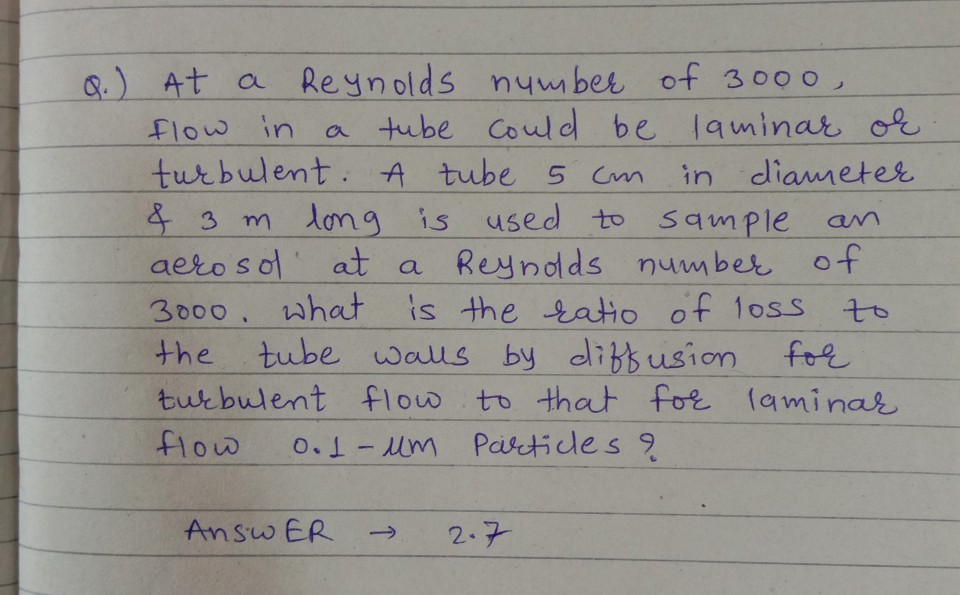 Q.) At a Reynolds number of 3000,
flow in a tube could be laminar or
turbulent. A tube 5 cm in diameter
& 3 m long is used to sample an
aerosol at a Reynolds number of
3000. What is the ratio of loss to
the tube walls by diffusion for
turbulent flow to that for laminar
flow 0.1-μm Particles?
AnswER → 2.7